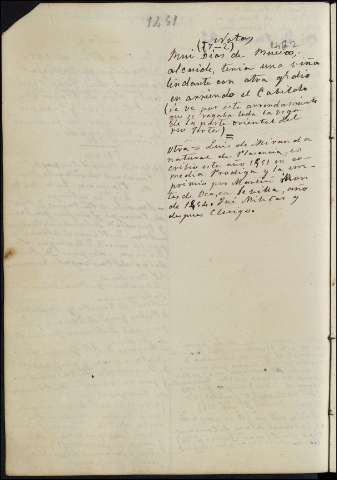 1481
Notas
(IV-2) 1482
Rui Dias de Mueso,
alcaide, tenia una viña
lindante con otra qe dio
en arriendo el Cabildo
(se ve por este arrendamiento
que se regaba toda la vega
de la parte oriental del
rio Jerte)
=
Otra = Luis de Miranda
natural de Plasencia, es
cribió este año 1551 su co
media Prodiga y la im-
primió por Martin Mon
tes de Oca, en Sevilla, año
de 1554. Fué Militar y
despues Clerigo.